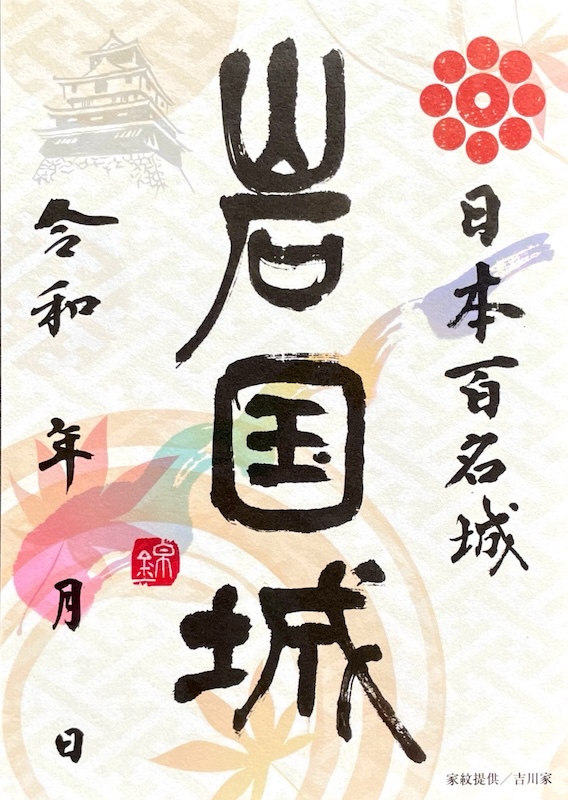 日本百名城
岩国城
令和 年 月 日
錦
家紋提供／吉川家